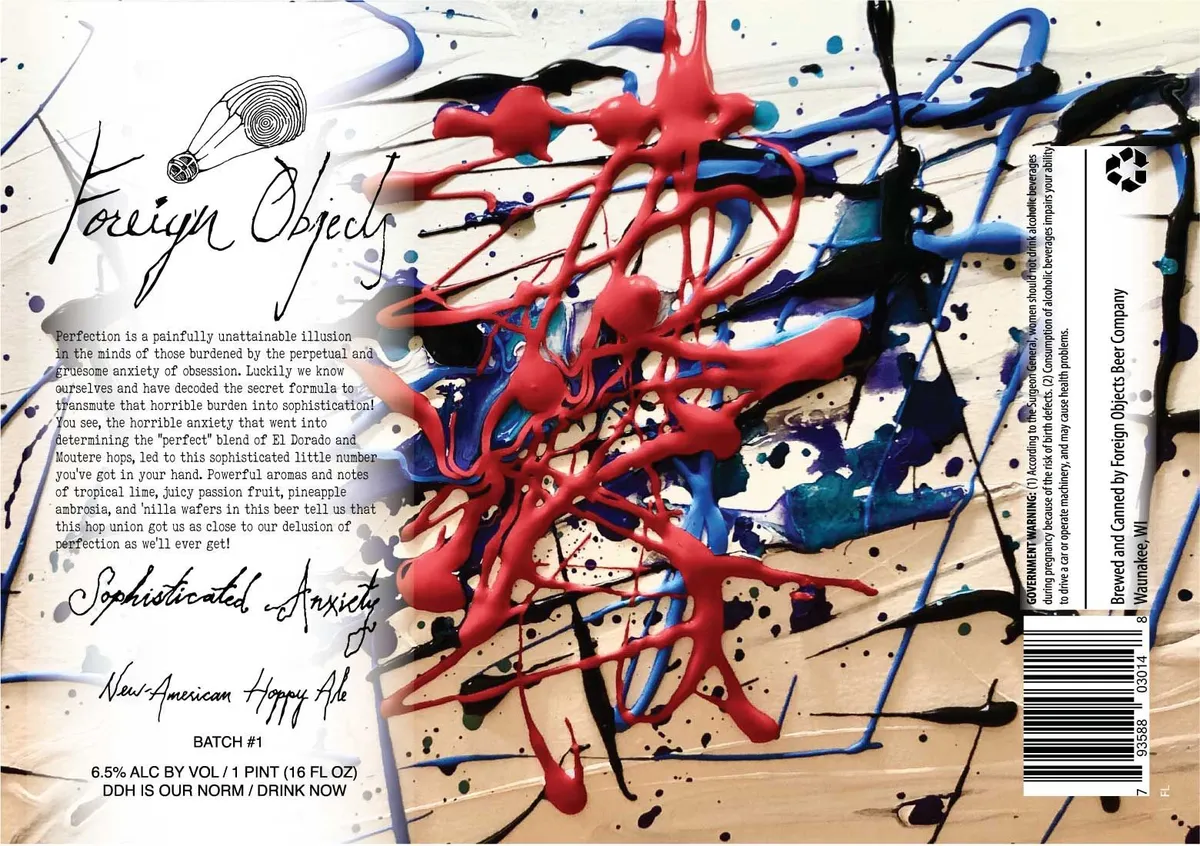 Foreign Objects
Perfection is a painfully unattainable illusion
in the minds of those burdened by the perpetual and
gruesome anxiety of obsession. Luckily we know
ourselves and have decoded the secret formula to
transmute that horrible burden into sophistication!
You see, the horrible anxiety that went into
determining the "perfect" blend of El Dorado and
Moutere hops, led to this sophisticated little number
you've got in your hand. Powerful aromas and notes
of tropical lime, juicy passion fruit, pineapple
ambrosia, and 'nilla wafers in this beer tell us that
this hop union got us as close to our delusion of
perfection as we'll ever get!
Sophisticated Anxiety
New-American Hoppy Ale
BATCH #1
6.5% ALC BY VOL / 1 PINT (16 FL OZ)
DDH IS OUR NORM / DRINK NOW
GOVERNMENT WARNING: (1) According to the Surgeon General, women should not drink alcoholic beverages
during pregnancy because of the risk of birth defects. (2) Consumption of alcoholic beverages impairs your ability
to drive a car or operate machinery, and may cause health problems.
Brewed and Canned by Foreign Objects Beer Company
Waunakee, WI
7 93588 03014 8
FL